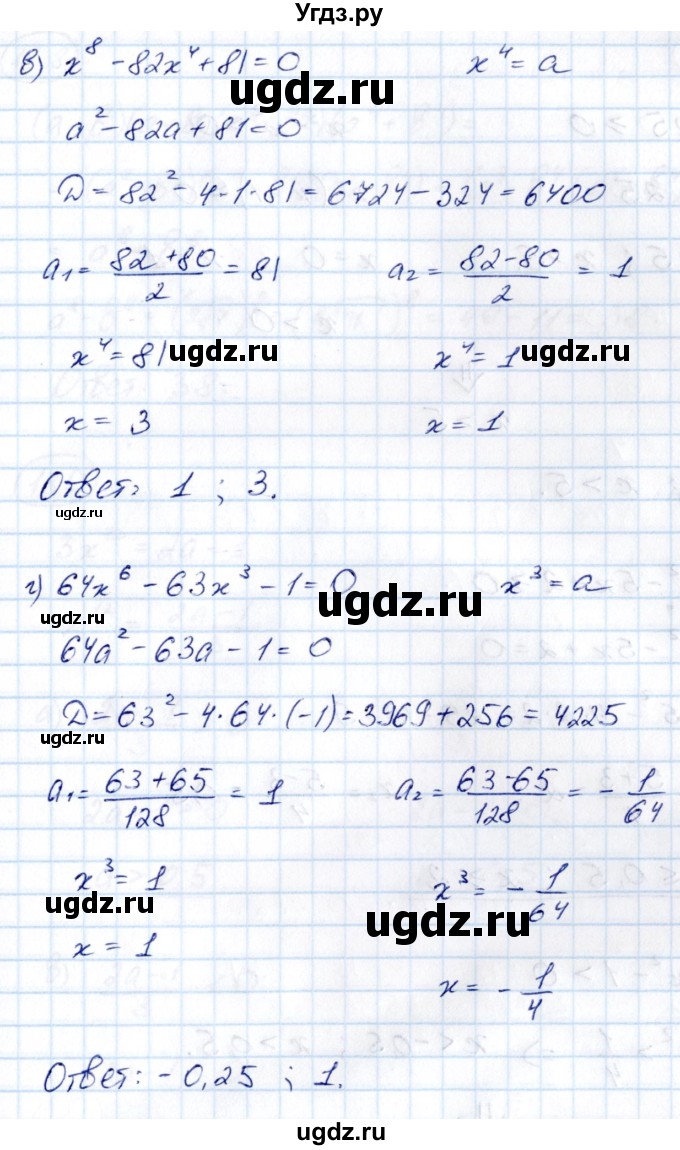 Угдз.ру
в) x⁸ - 82x⁴ + 81 = 0 x⁴ = a
ugdz.ru
a² - 82a + 81 = 0
D = 82² - 4·1·81 = 6724 - 324 = 6400
a₁ = (82+80)/2 = 81 a₂ = (82-80)/2 = 1
x⁴ = 81 ugdz.ru x⁴ = 1 ugdz.ru
x = 3 x = 1
Ответ: 1 ; 3.
ugdz.ru
г) 64x⁶ - 63x³ - 1 = 0 x³ = a
ugdz.ru ugdz.ru
64a² - 63a - 1 = 0
D = 63² - 4·64·(-1) = 3969 + 256 = 4225
ugdz.ru
a₁ = (63+65)/128 = 1 a₂ = (63-65)/128 = -1/64
x³ = 1 x³ = -1/64
ugdz.ru ugdz.ru
x = 1 x = -1/4
Ответ: -0,25 ; 1.
ugdz.ru